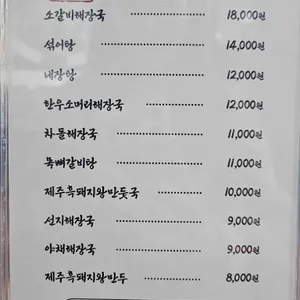 소갈비해장국 ················ 18,000원
섞어탕 ················ 14,000원
내장탕 ················ 12,000원
한우소머리해장국 ················ 12,000원
차돌해장국 ················ 11,000원
뚝빼갈비탕 ················ 11,000원
제주흑돼지왕만둣국 ················ 10,000원
선지해장국 ················ 9,000원
야채해장국 ················ 9,000원
제주흑돼지왕만두 ················ 8,000원